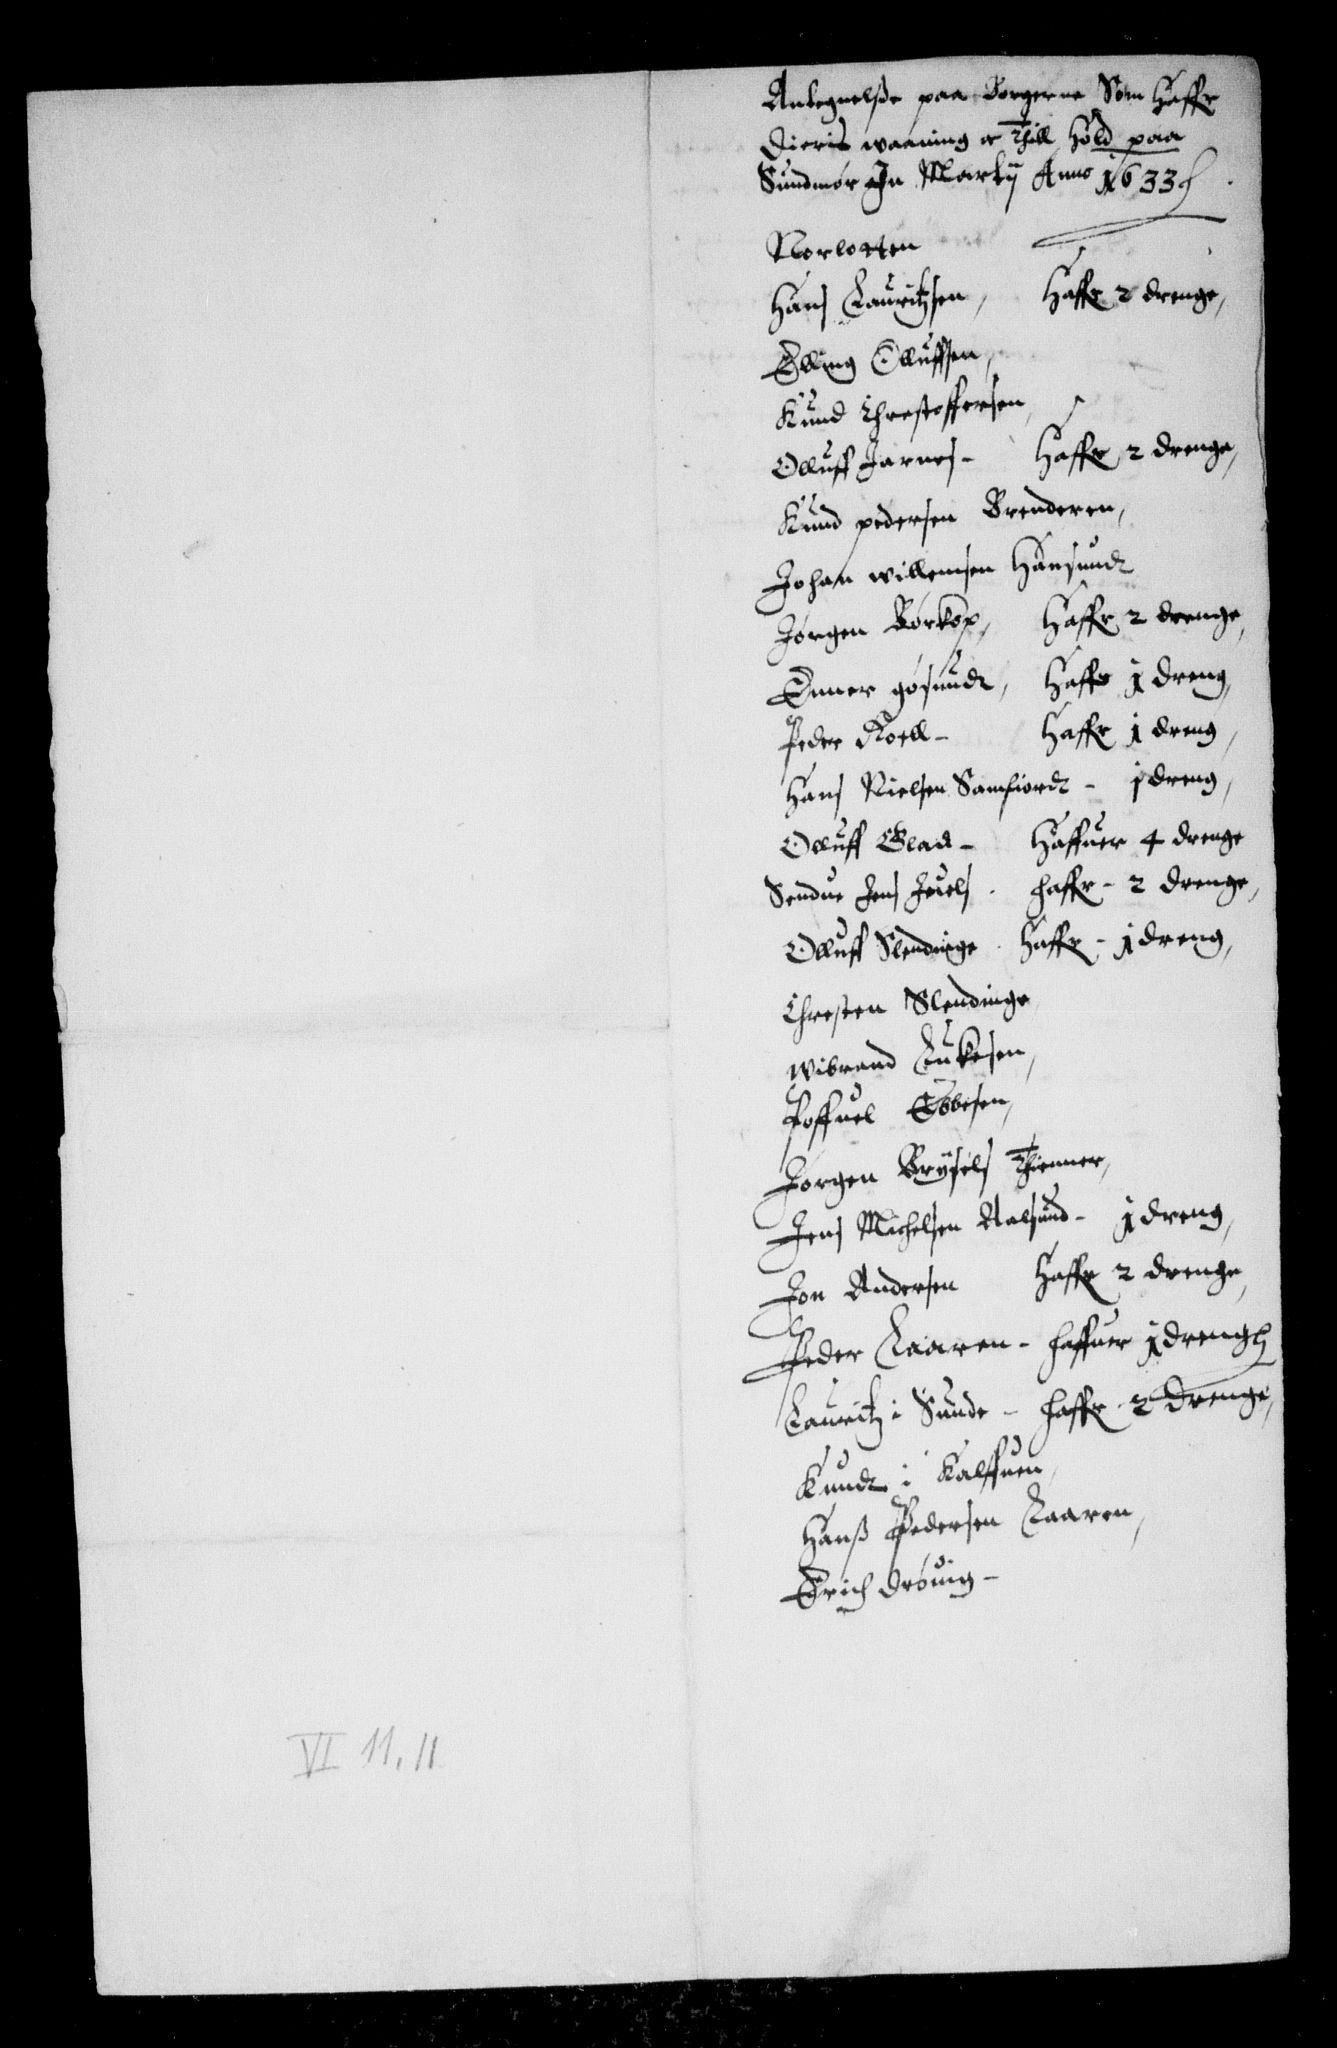 Antegnelsse paa Borgerne Som Haffr
dieris waaning oc Thill Hold paa
Sundmør In Martij Anno 1633
Norlotten
Hans Lauritzsen, Haffr 2 drenge,
Elling Olluffsen,
Knud Chrestoffersen,
Olluff Jarnes - Haffr 2 drenge,
Knud pedersen Brenderen,
Johan willemsen Hansundt
Jørgen Børkop, Haffr 2 drenge,
Enner gøsundt, Haffr 1 dreng,
Peder Roell - Haffr 1 dreng,
Hans Nielsen Samfiordt - 1 dreng,
Olluff Glad - Haffuer 4 drenge
Jens Juels - haffr - 2 drenge,
Olluff Slendinge - Haffr - 1 dreng,
Chresten Slendinge
wibrand Lukesen,
Poffuel Ebbesen,
Jørgen Brysels Thienner,
Jens Michelsen Aalsund - 1 dreng,
Jon Andersen Haffr 2 drenge,
Peder Laaren - haffuer 1 dreng
Lauritz i Sunde - haffr 2 drenge,
Knudt i Kalffuen,
Hanss Pedersen Laaren,
Erich drøuig -
VI 11, 11